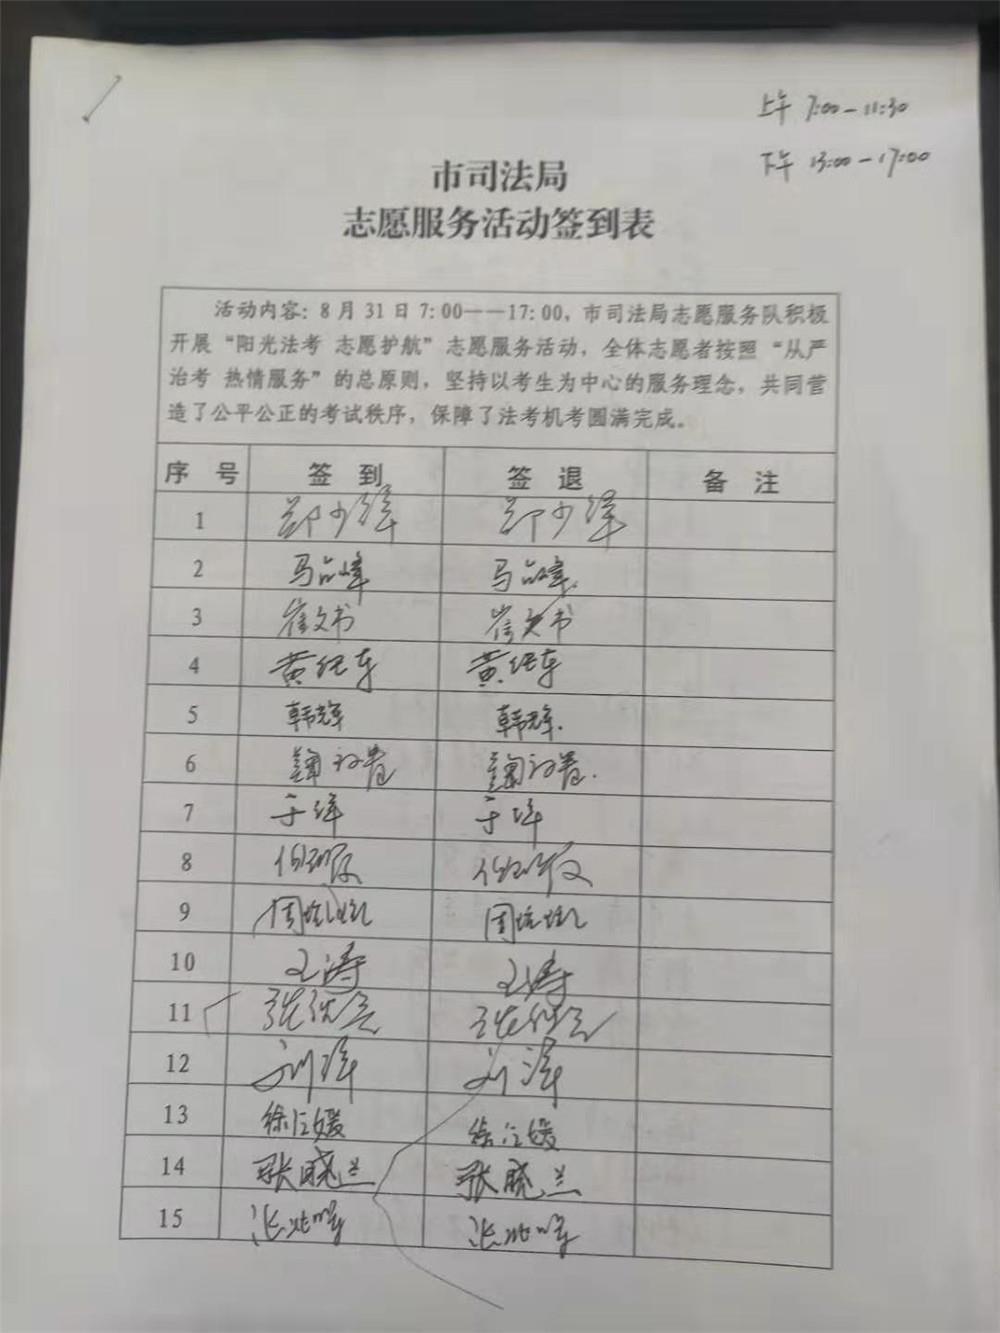 上午 7:00-11:30
下午 13:00-17:00
市司法局
志愿服务活动签到表
活动内容：8月31日7:00——17:00，市司法局志愿服务队积极
开展“阳光法考 志愿护航”志愿服务活动，全体志愿者按照“从严
治考 热情服务”的总原则，坚持以考生为中心的服务理念，共同营
造了公平公正的考试秩序，保障了法考机考圆满完成。
序 号 签 到 签 退 备 注
1
2 马 马
3 崔文书 崔文书
4 黄 黄
5 韩辉 韩辉
6
7 于洋 于洋
8
9 周 周
10 王涛 王涛
11 张 张
12 刘洋 刘洋
13 徐 媛 徐 媛
14 张晓兰 张晓兰
15 张 张